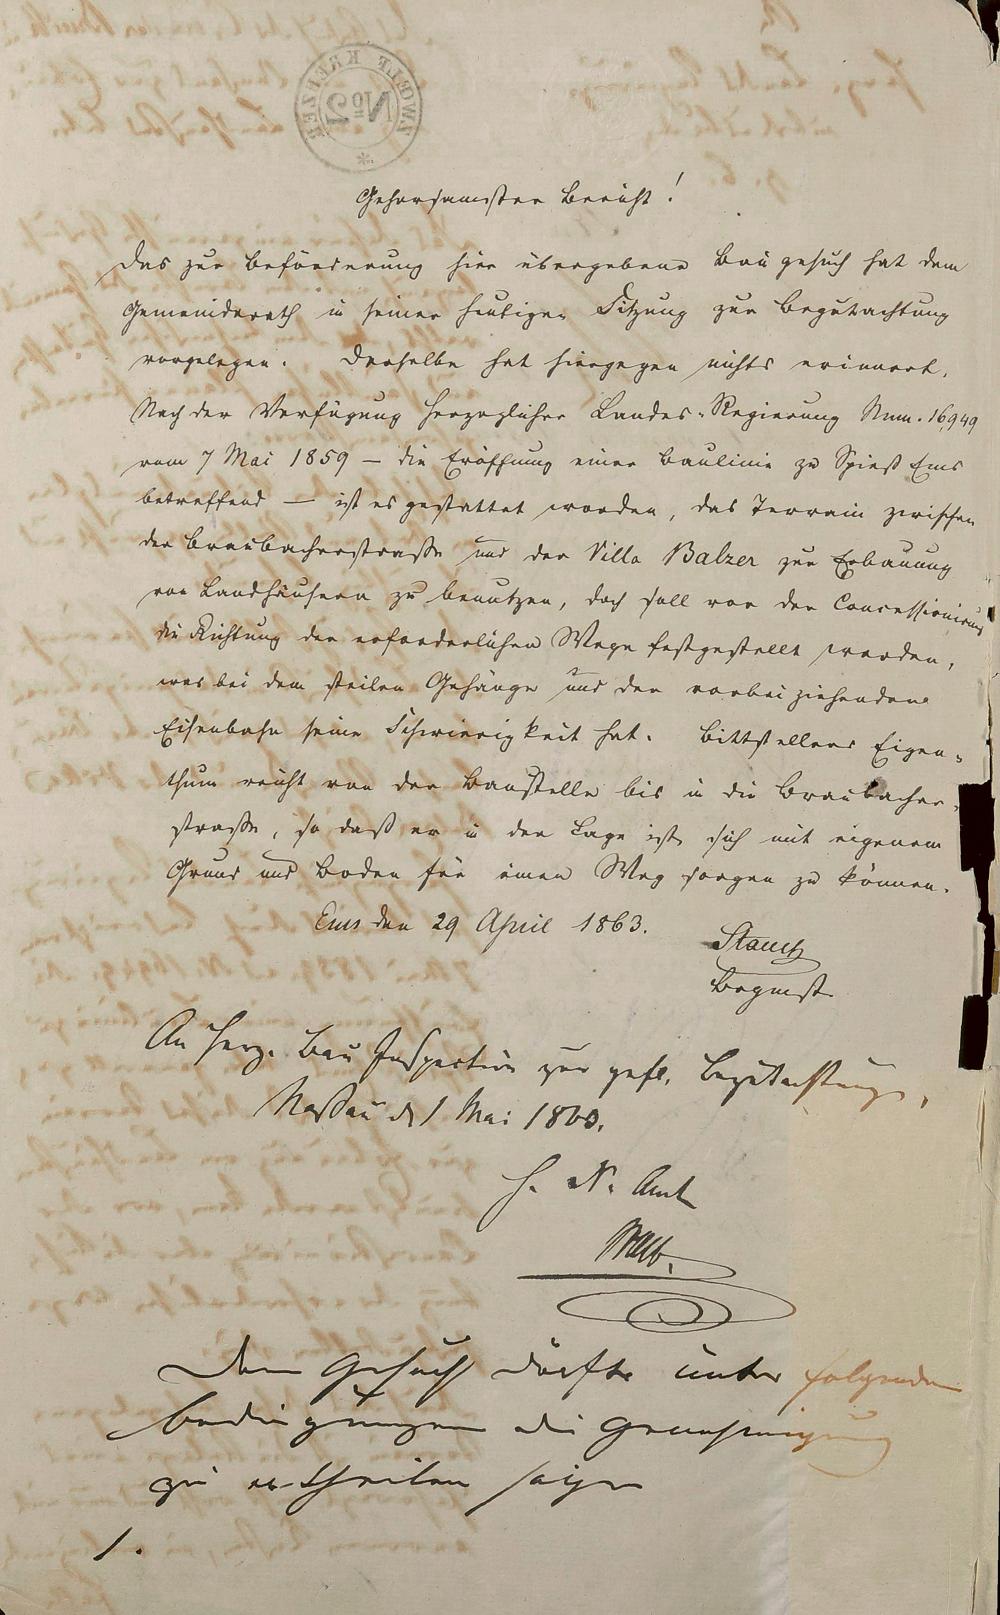 ZWOELF KREUZER
No 2
Gehorsamster Bericht!
Das zur Beförderung hier übergebene Baugesuch hat dem
Gemeinderath in seiner heutigen Sitzung zur Begutachtung
vorgelegen. Derselbe hat hiergegen nichts erinnert.
Nach der Verfügung Herzoglicher Landes-Regierung Num. 16,949
vom 7 Mai 1859 — die Eröffnung einer Baulinie zu Spieß Ems
betreffend — ist es gestattet worden, das Terrain zwischen
der Braubacherstraße und der Villa Balzer zur Erbauung
von Landhäusern zu benutzen, doch soll vor der Concessionirung
die Richtung der erforderlichen Wege festgestellt werden,
was bei dem steilen Gehänge und der vorbei ziehenden
Eisenbahn seine Schwierigkeit hat. Bittstellers Eigen-
thum reicht von der Baustelle bis in die Braubacher-
straße, so daß er in der Lage ist, sich mit eigenem
Grund und Boden für einen Weg sorgen zu können.
Ems den 29 April 1863.
Brgmstr
An Herz. Bau Inspection zur gefl. Begutachtung.
Nassau d 1 Mai 1863.
H. N. Amt
Dem Gesuch dürfte unter folgenden
Bedingungen die Genehmigung
zu ertheilen seyn
1.